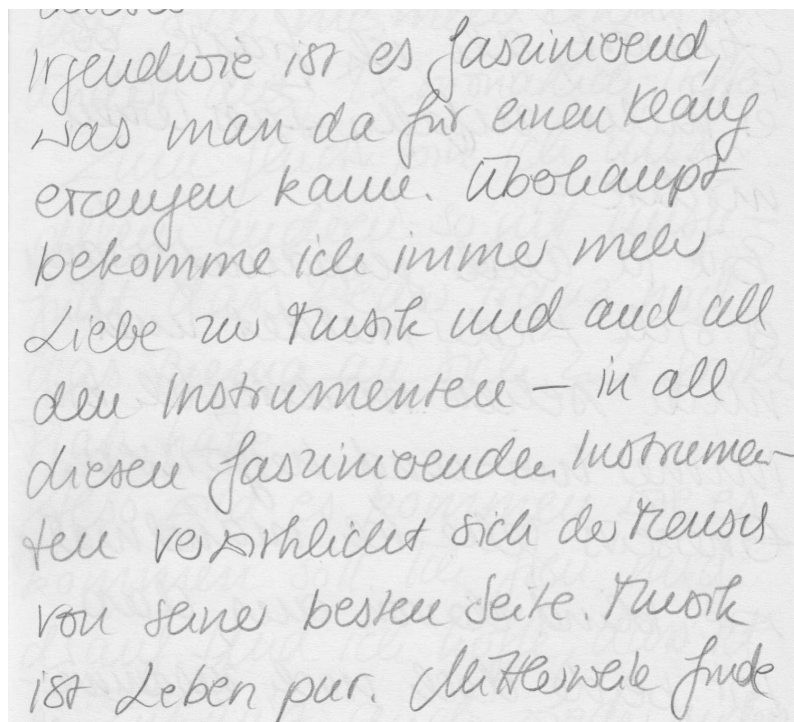 Irgendwie ist es faszinierend,
was man da für einen Klang
erzeugen kann. Überhaupt
bekomme ich immer mehr
Liebe zur Musik und auch all
den Instrumenten – in all
diesen faszinierenden Instrumen-
ten versinnlicht sich der Mensch
von seiner besten Seite. Musik
ist Leben pur. Mittlerweile finde